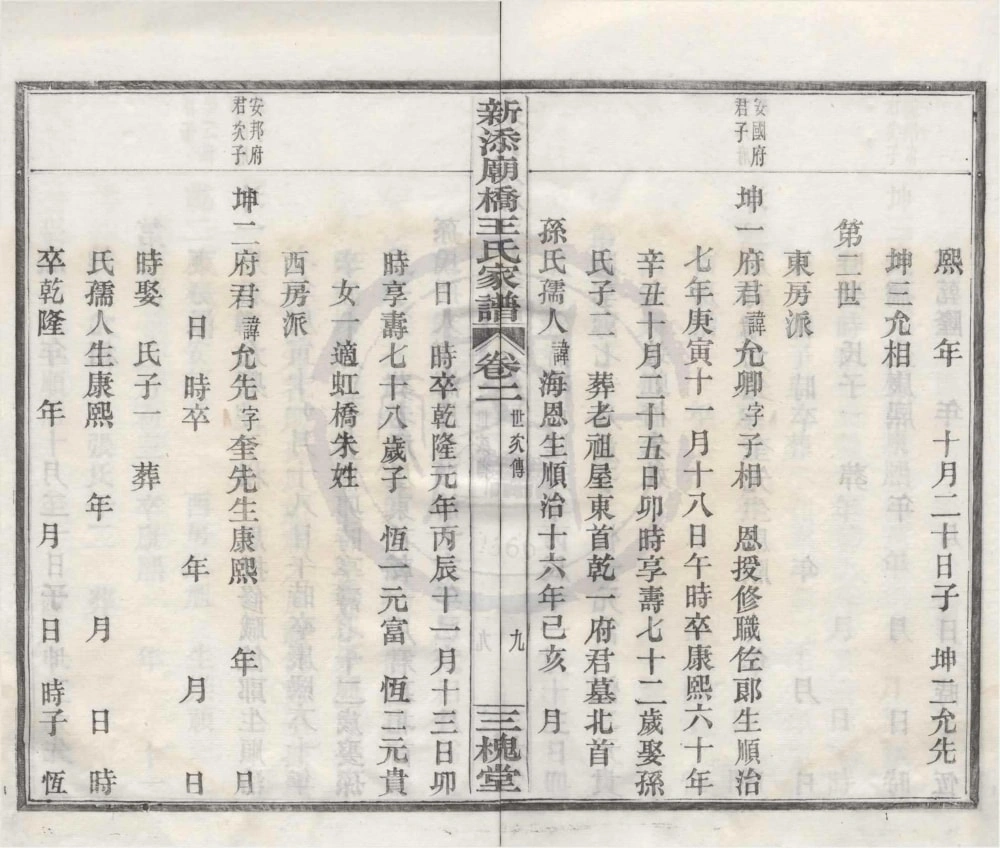 熙　年　年十月二十日子　坤二允先
坤三允相
第二世
東房派
安國府
君子
坤一府君諱允卿字子相　恩授修職佐郎生順治
七年庚寅十一月十八日午時卒康熙六十年
辛丑十月二十五日卯時享壽七十二歲娶孫
氏子二　葬老祖屋東首乾一府君墓北首
孫氏孺人諱海恩生順治十六年己亥　月
新添廟橋王氏家譜　卷二　世次傳　九　三槐堂
日　時卒乾隆元年丙辰十一月十三日卯
時享壽七十八歲子　恆一元富　恆二元貴
女一適虹橋朱姓
西房派
安邦府
君次子
坤二府君諱允先字奎先生康熙　年　月
日　時卒　年　月　日
時娶　氏子一　葬
氏孺人生康熙　年　月　日　時
卒乾隆　年　月　日　時子　恆